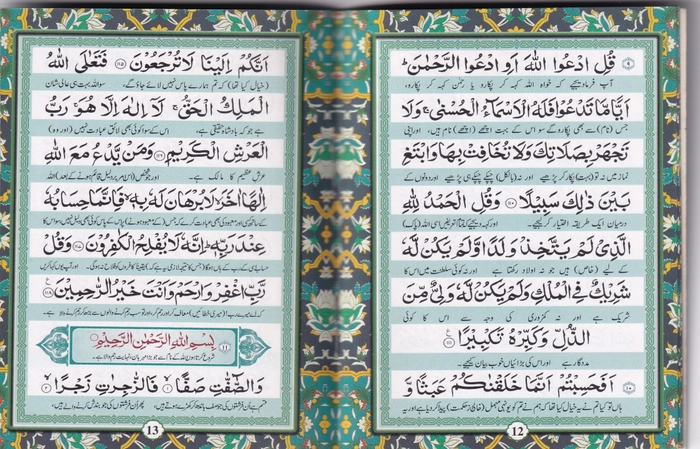 قُلِ ادْعُوا اللّٰهَ اَوِ ادْعُوا الرَّحْمٰنَ ؕ
آپ فرما دیجیے کہ خواہ اللہ کہہ کر پکارو یا رحمٰن کہہ کر پکارو،
اَيًّا مَّا تَدْعُوْا فَلَهُ الْاَسْمَآءُ الْحُسْنٰى ۚ وَلَا
جس (نام) سے بھی پکارو گے سو اس کے بہت اچھے (اچھے) نام ہیں، اور اپنی
تَجْهَرْ بِصَلَاتِكَ وَلَا تُخَافِتْ بِهَا وَابْتَغِ
نماز میں نہ تو (بہت) پکار کر پڑھیے اور نہ (بالکل) چپکے چپکے ہی پڑھیے اور دونوں کے
بَيْنَ ذٰلِكَ سَبِيْلًا ۝۱۱۰ وَقُلِ الْحَمْدُ لِلّٰهِ
درمیان ایک طریقہ اختیار کر لیجیے۔ اور کہہ دیجیے کہ تمام تعریفیں اسی اللہ (پاک)
الَّذِيْ لَمْ يَتَّخِذْ وَلَدًا وَّلَمْ يَكُنْ لَّهٗ
کے لیے (خاص) ہیں جو نہ اولاد رکھتا ہے اور نہ کوئی سلطنت میں اس کا
شَرِيْكٌ فِى الْمُلْكِ وَلَمْ يَكُنْ لَّهٗ وَلِيٌّ مِّنَ
شریک ہے اور نہ کمزوری کی وجہ سے اس کا کوئی
الذُّلِّ وَكَبِّرْهُ تَكْبِيْرًا ۝۱۱۱
مددگار ہے اور اس کی بڑائیاں خوب بیان کیجیے۔
اَفَحَسِبْتُمْ اَنَّمَا خَلَقْنٰكُمْ عَبَثًا وَّ
ہاں تو کیا تم نے یہ خیال کیا تھا کہ ہم نے تم کو یونہی مہمل (خالی از حکمت) پیدا کر دیا ہے اور یہ
12
اَنَّكُمْ اِلَيْنَا لَا تُرْجَعُوْنَ ۝۱۱۵ فَتَعٰلَى اللّٰهُ
(خیال کیا تھا) کہ تم ہمارے پاس نہیں لائے جاؤ گے، سو اللہ بہت ہی عالی شان
الْمَلِكُ الْحَقُّ ۚ لَاۤ اِلٰهَ اِلَّا هُوَ ۚ رَبُّ
ہے جو کہ بادشاہ حقیقی ہے، اس کے سوا کوئی بھی لائق عبادت نہیں (اور وہ)
الْعَرْشِ الْكَرِيْمِ ۝۱۱۶ وَمَنْ يَّدْعُ مَعَ اللّٰهِ
عرش عظیم کا مالک ہے۔ اور جو شخص (اس امر پر دلیل قائم ہونے کے بعد) اللہ
اِلٰهًا اٰخَرَ ۙ لَا بُرْهَانَ لَهٗ بِهٖ ۙ فَاِنَّمَا حِسَابُهٗ
کے ساتھ کسی اور معبود کی بھی عبادت کرے کہ جس (کے معبود ہونے) پر اس کے پاس کوئی بھی دلیل نہیں سو اس کا
عِنْدَ رَبِّهٖ ؕ اِنَّهٗ لَا يُفْلِحُ الْكٰفِرُوْنَ ۝۱۱۷ وَقُلْ
حساب اس کے رب کے ہاں ہوگا (جس کا نتیجہ لازمی یہ ہے کہ) یقیناً کافروں کو فلاح نہ ہوگی۔ اور آپ یوں کہا کریں
رَّبِّ اغْفِرْ وَارْحَمْ وَاَنْتَ خَيْرُ الرّٰحِمِيْنَ ۝۱۱۸
کہ اے میرے رب! معاف کر اور رحم کر اور تو سب رحم کرنے والوں سے بڑھ کر رحم کرنے والا ہے۔
بِسْمِ اللّٰهِ الرَّحْمٰنِ الرَّحِيْمِ
شروع کرتا ہوں اللہ کے نام سے جو بڑا مہربان نہایت رحم والا ہے۔
وَالصّٰٓفّٰتِ صَفًّا ۝۱ فَالزّٰجِرٰتِ زَجْرًا ۝۲
قسم ہے اُن فرشتوں کی جو صف باندھ کر کھڑے ہوتے ہیں، پھر اُن فرشتوں کی جو بندش کرنے والے ہیں،
13